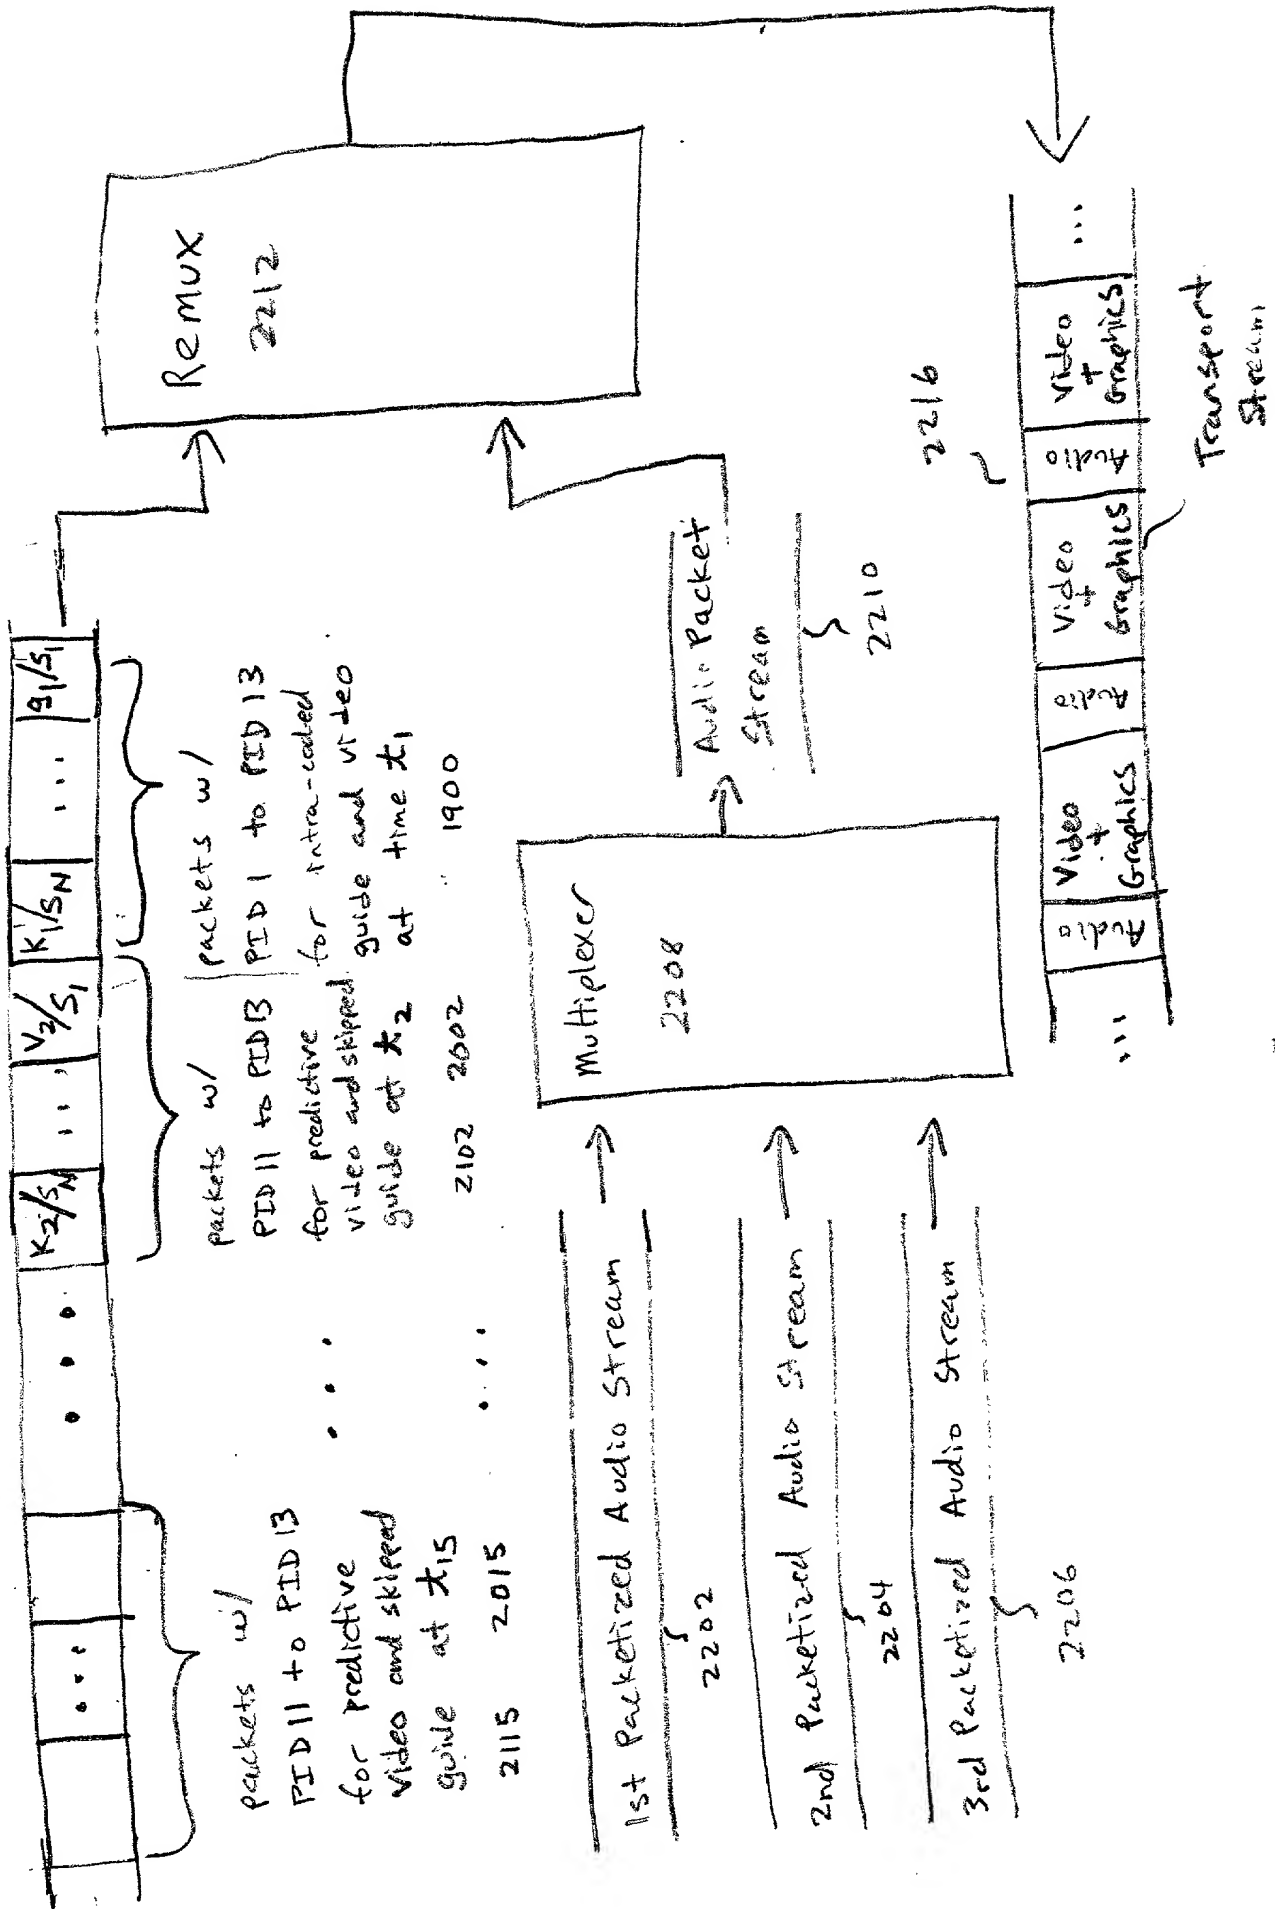 K2/SN ... V2/S1 K1/SN ... g1/S1
packets w/
PID 11 to PID 13
for predictive
video and skipped
guide at t15
2115 2015
...
...
packets w/
PID 11 to PID 13
for predictive
video and skipped
guide at t2
2102 2002
packets w/
PID 1 to PID 13
for intra-coded
guide and video
at time t1
1900
Remux
2212
1st Packetized Audio Stream
2202
2nd Packetized Audio Stream
2204
3rd Packetized Audio Stream
2206
Multiplexer
2208
Audio Packet
Stream
2210
2216
...
Audio
Video
+
Graphics
Audio
Video
+
Graphics
Audio
Video
+
Graphics
...
Transport
Stream